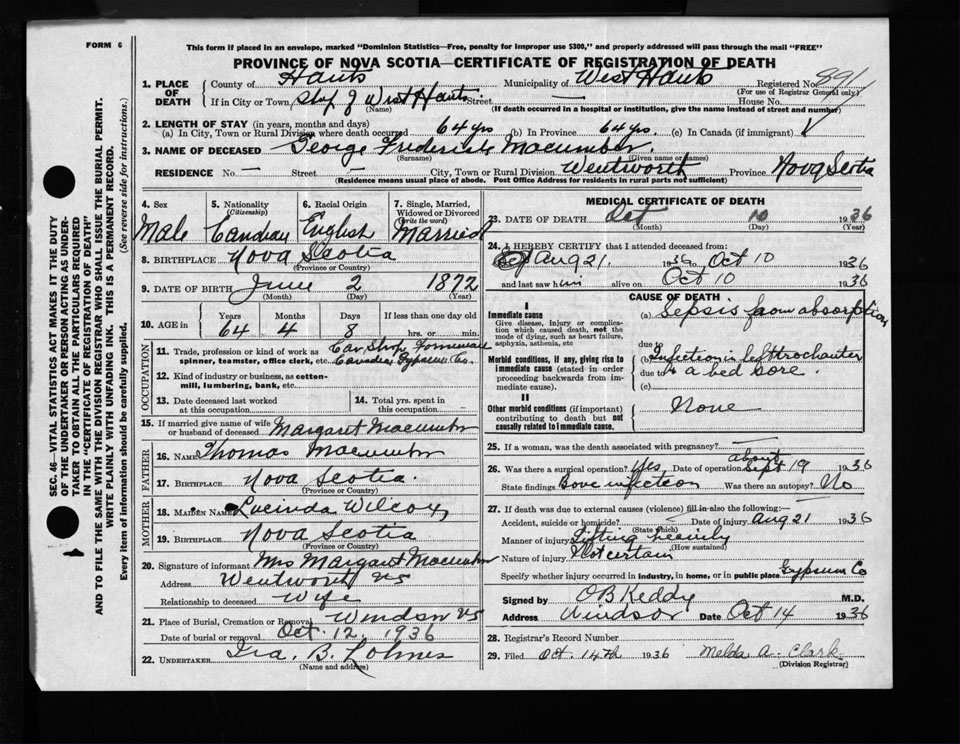 FORM 6
This form if placed in an envelope, marked "Dominion Statistics—Free, penalty for improper use $300," and properly addressed will pass through the mail "FREE"
PROVINCE OF NOVA SCOTIA—CERTIFICATE OF REGISTRATION OF DEATH
1. PLACE OF DEATH
County of Hants Municipality of West Hants Registered No. 891
(For use of Registrar General only)
If in City or Town, Shop of West Hants Street — House No.
(Name) (If death occurred in a hospital or institution, give the name instead of street and number)
2. LENGTH OF STAY (in years, months and days)
(a) In City, Town or Rural Division where death occurred 64 yrs (b) In Province 64 yrs. (c) In Canada (if immigrant)
3. NAME OF DECEASED George Frederick Macumber.
(Surname) (Given name or names)
RESIDENCE No — Street — City, Town or Rural Division Wentworth Province Nova Scotia
(Residence means usual place of abode. Post Office Address for residents in rural parts not sufficient)
4. Sex Male
5. Nationality (Citizenship) Candian
6. Racial Origin English
7. Single, Married, Widowed or Divorced (Write the word) Married
8. BIRTHPLACE Nova Scotia
(Province or Country)
9. DATE OF BIRTH June 2 1872
(Month) (Day) (Year)
10. AGE in Years 64 Months 4 Days 8 If less than one day hrs. or min.
OCCUPATION
11. Trade, profession or kind of work as spinner, teamster, office clerk, etc. Car Shop
Gypsum Co.
12. Kind of industry or business, as cotton-mill, lumbering, bank, etc.
13. Date deceased last worked at this occupation
14. Total yrs. spent in this occupation
15. If married give name of wife or husband of deceased Margaret Macumber
FATHER
16. NAME Thomas Macumber
17. BIRTHPLACE Nova Scotia.
(Province or Country)
MOTHER
18. MAIDEN NAME Lucinda Wilcox,
19. BIRTHPLACE Nova Scotia
(Province or Country)
20. Signature of informant Mrs Margaret Macumber
Address Wentworth NS
Relationship to deceased Wife
21. Place of Burial, Cremation or Removal Windsor NS
Date of burial or removal Oct. 12, 1936
22. UNDERTAKER Ira. B. Lohnes
(Name and address)
MEDICAL CERTIFICATE OF DEATH
23. DATE OF DEATH Oct 10 1936
(Month) (Day) (Year)
24. I HEREBY CERTIFY that I attended deceased from:
Aug 21. 1936 to Oct 10 1936
and last saw him alive on Oct 10 1936
CAUSE OF DEATH
I
Immediate cause
Give disease, injury or complication which caused death, not the mode of dying, such as heart failure, asphyxia, asthenia, etc
(a) Sepsis from absorption
due to
Morbid conditions, if any, giving rise to immediate cause (stated in order proceeding backwards from immediate cause).
(b) Infection in left trochanter
due to to a bed sore.
(c)
II
Other morbid conditions (if important) contributing to death but not causally related to immediate cause.
None
25. If a woman, was the death associated with pregnancy? —
26. Was there a surgical operation? Yes Date of operation about Sept 19 1936
State findings Bone infection Was there an autopsy? No
27. If death was due to external causes (violence) fill in also the following:—
Accident, suicide or homicide? — Date of injury Aug 21 1936
(State which)
Manner of injury Lifting heavily
(How sustained)
Nature of injury Not certain
Specify whether injury occurred in industry, in home, or in public place Gypsum Co
Signed by O B Keddy M.D.
Address Windsor Date Oct 14 1936
28. Registrar's Record Number
29. Filed Oct. 14th 1936 Melda A. Clark
(Division Registrar)
SEC. 46—VITAL STATISTICS ACT MAKES IT THE DUTY
OF THE UNDERTAKER OR PERSON ACTING AS UNDER-
TAKER TO OBTAIN ALL THE PARTICULARS REQUIRED
IN THE "CERTIFICATE OF REGISTRATION OF DEATH"
AND TO FILE THE SAME WITH THE DIVISION REGISTRAR WHO SHALL ISSUE THE BURIAL PERMIT.
WRITE PLAINLY WITH UNFADING INK. THIS IS A PERMANENT RECORD.
Every item of information should be carefully supplied. (See reverse side for instructions.)